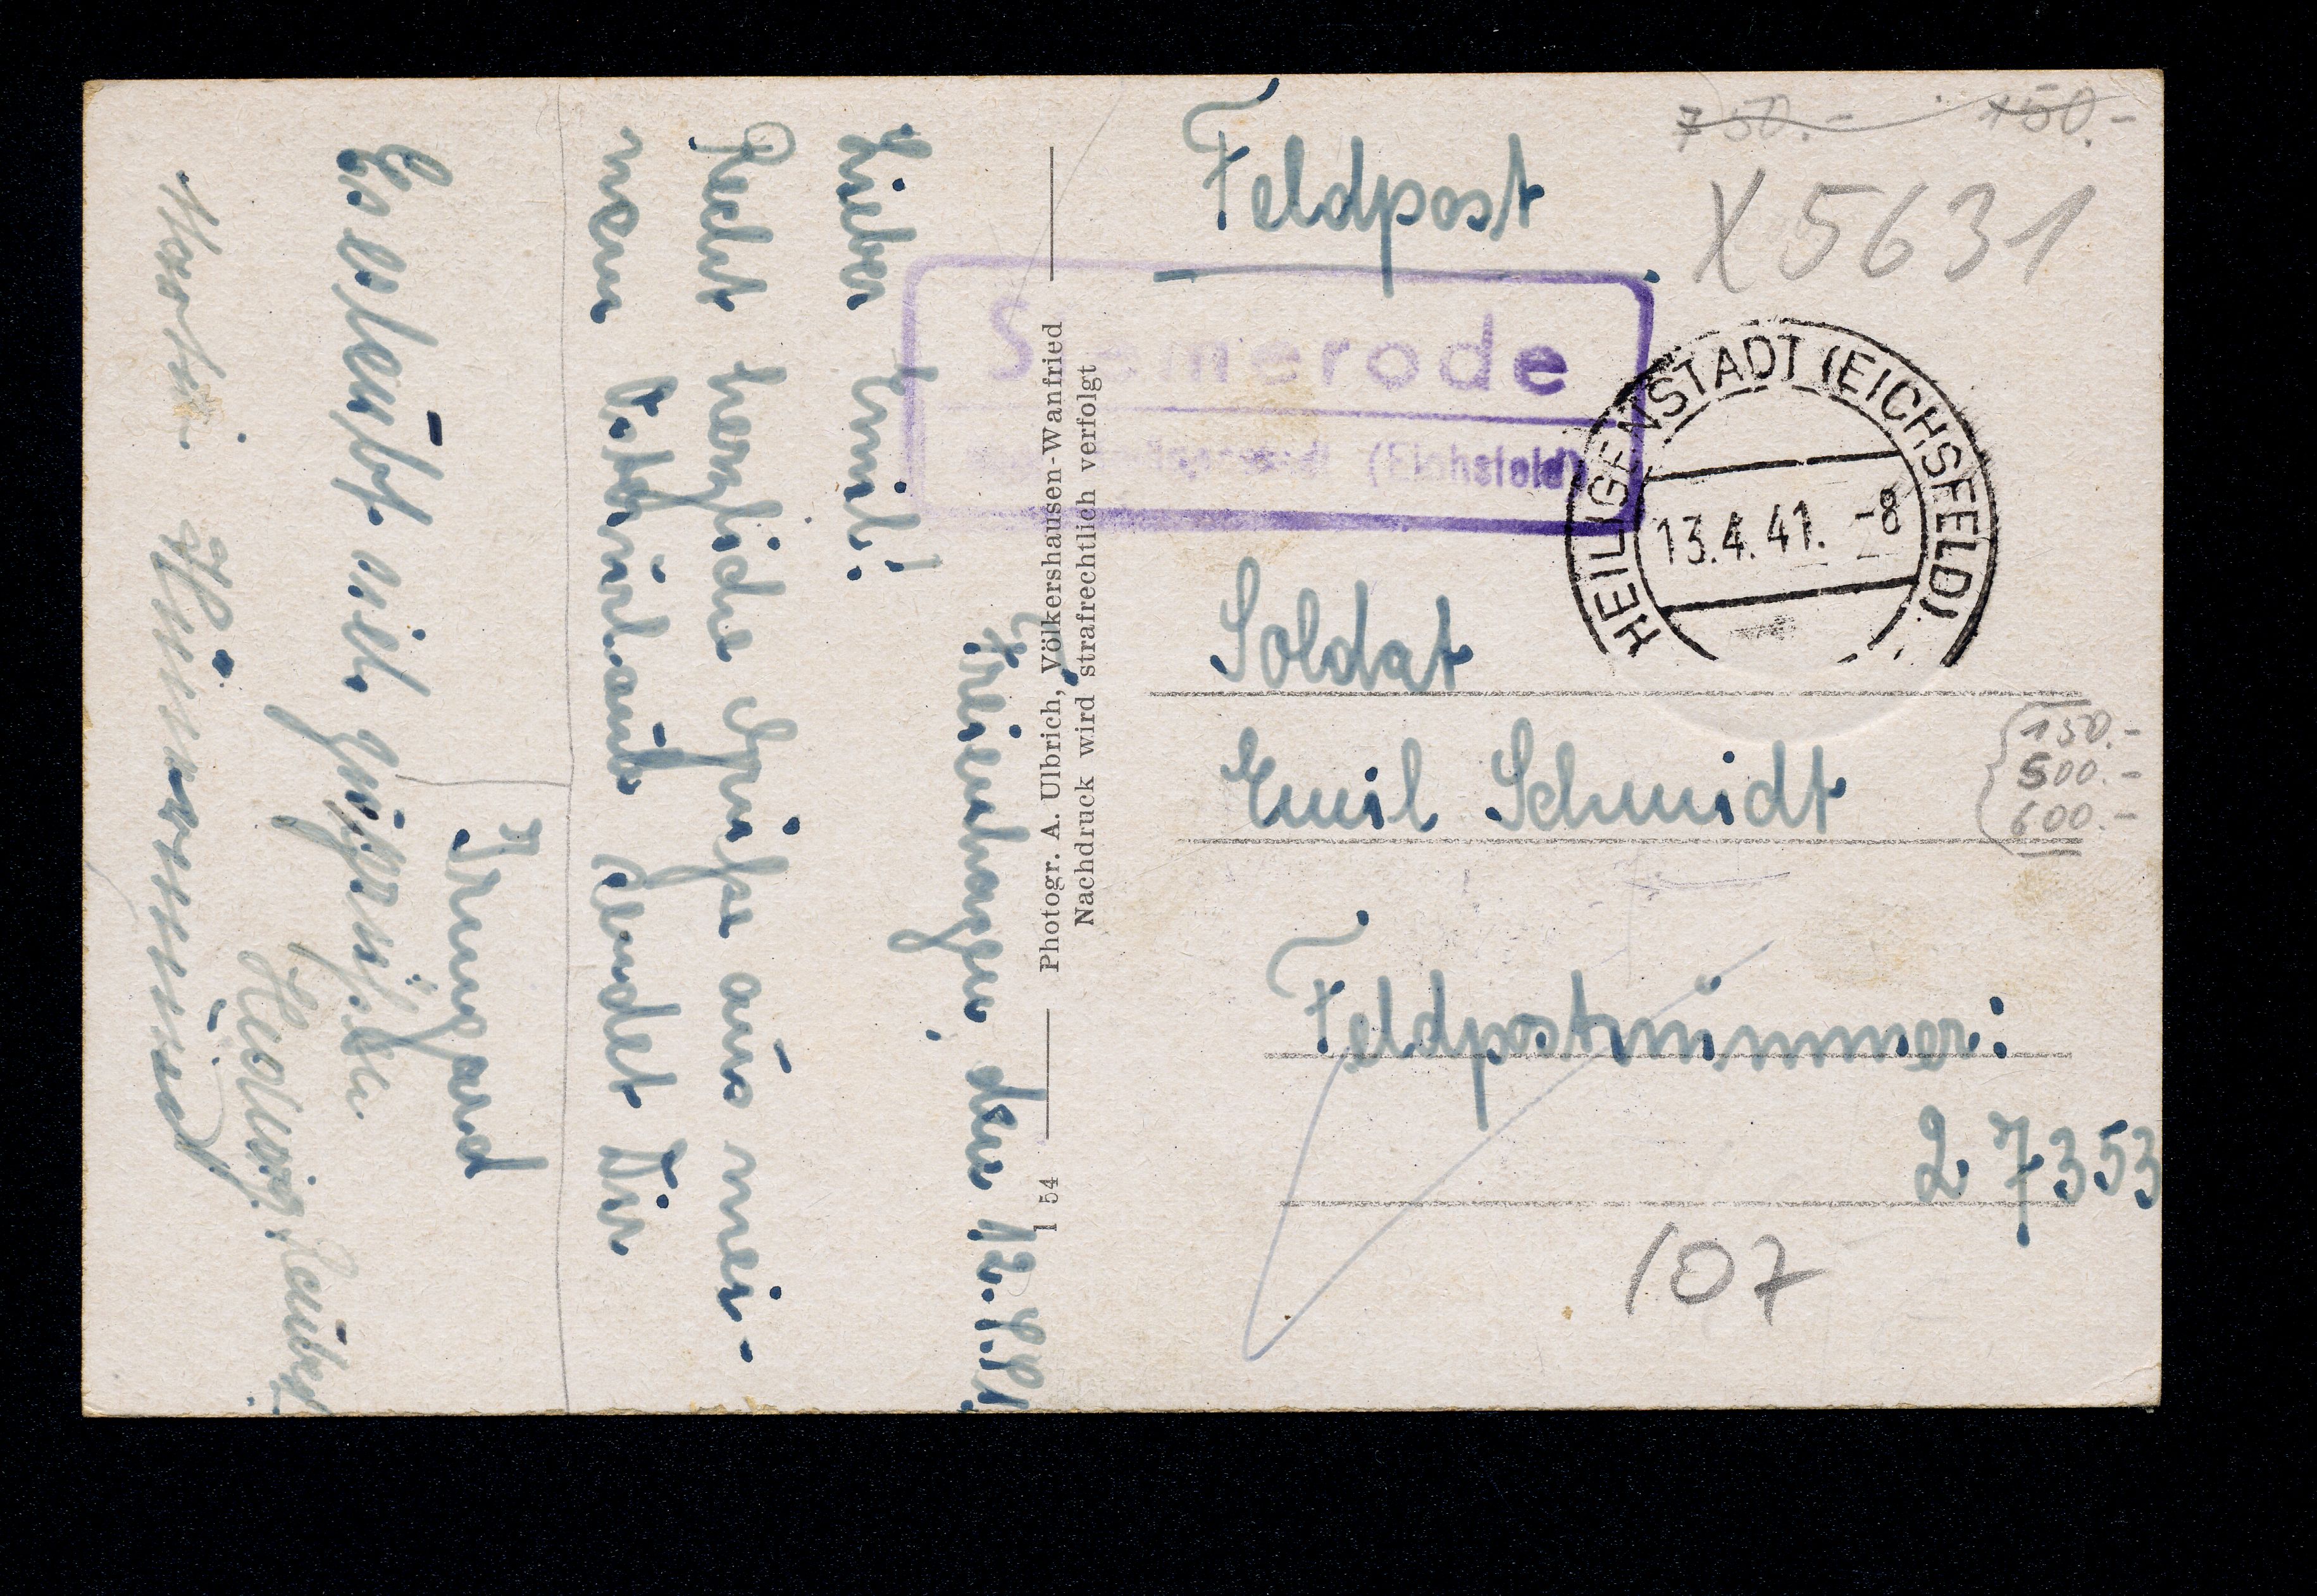 750.- 150.-
X 5631
Feldpost
Siemerode
(Eichsfeld)
HEILIGENSTADT (EICHSFELD)
13.4.41. -8
Soldat
Emil Schmidt
Feldpostnummer:
27353
150.-
500.-
600.-
107
Photogr. A. Ulbrich, Völkershausen-Wanfried
Nachdruck wird strafrechtlich verfolgt
I 54
Freienhagen, den 12.4.41
Lieber Emil!
Recht herzliche Grüße aus mei-
nem Osterurlaub sendet Dir
Irmgard
Es erlaubt sich zu grüßen
Hedwig
Martin